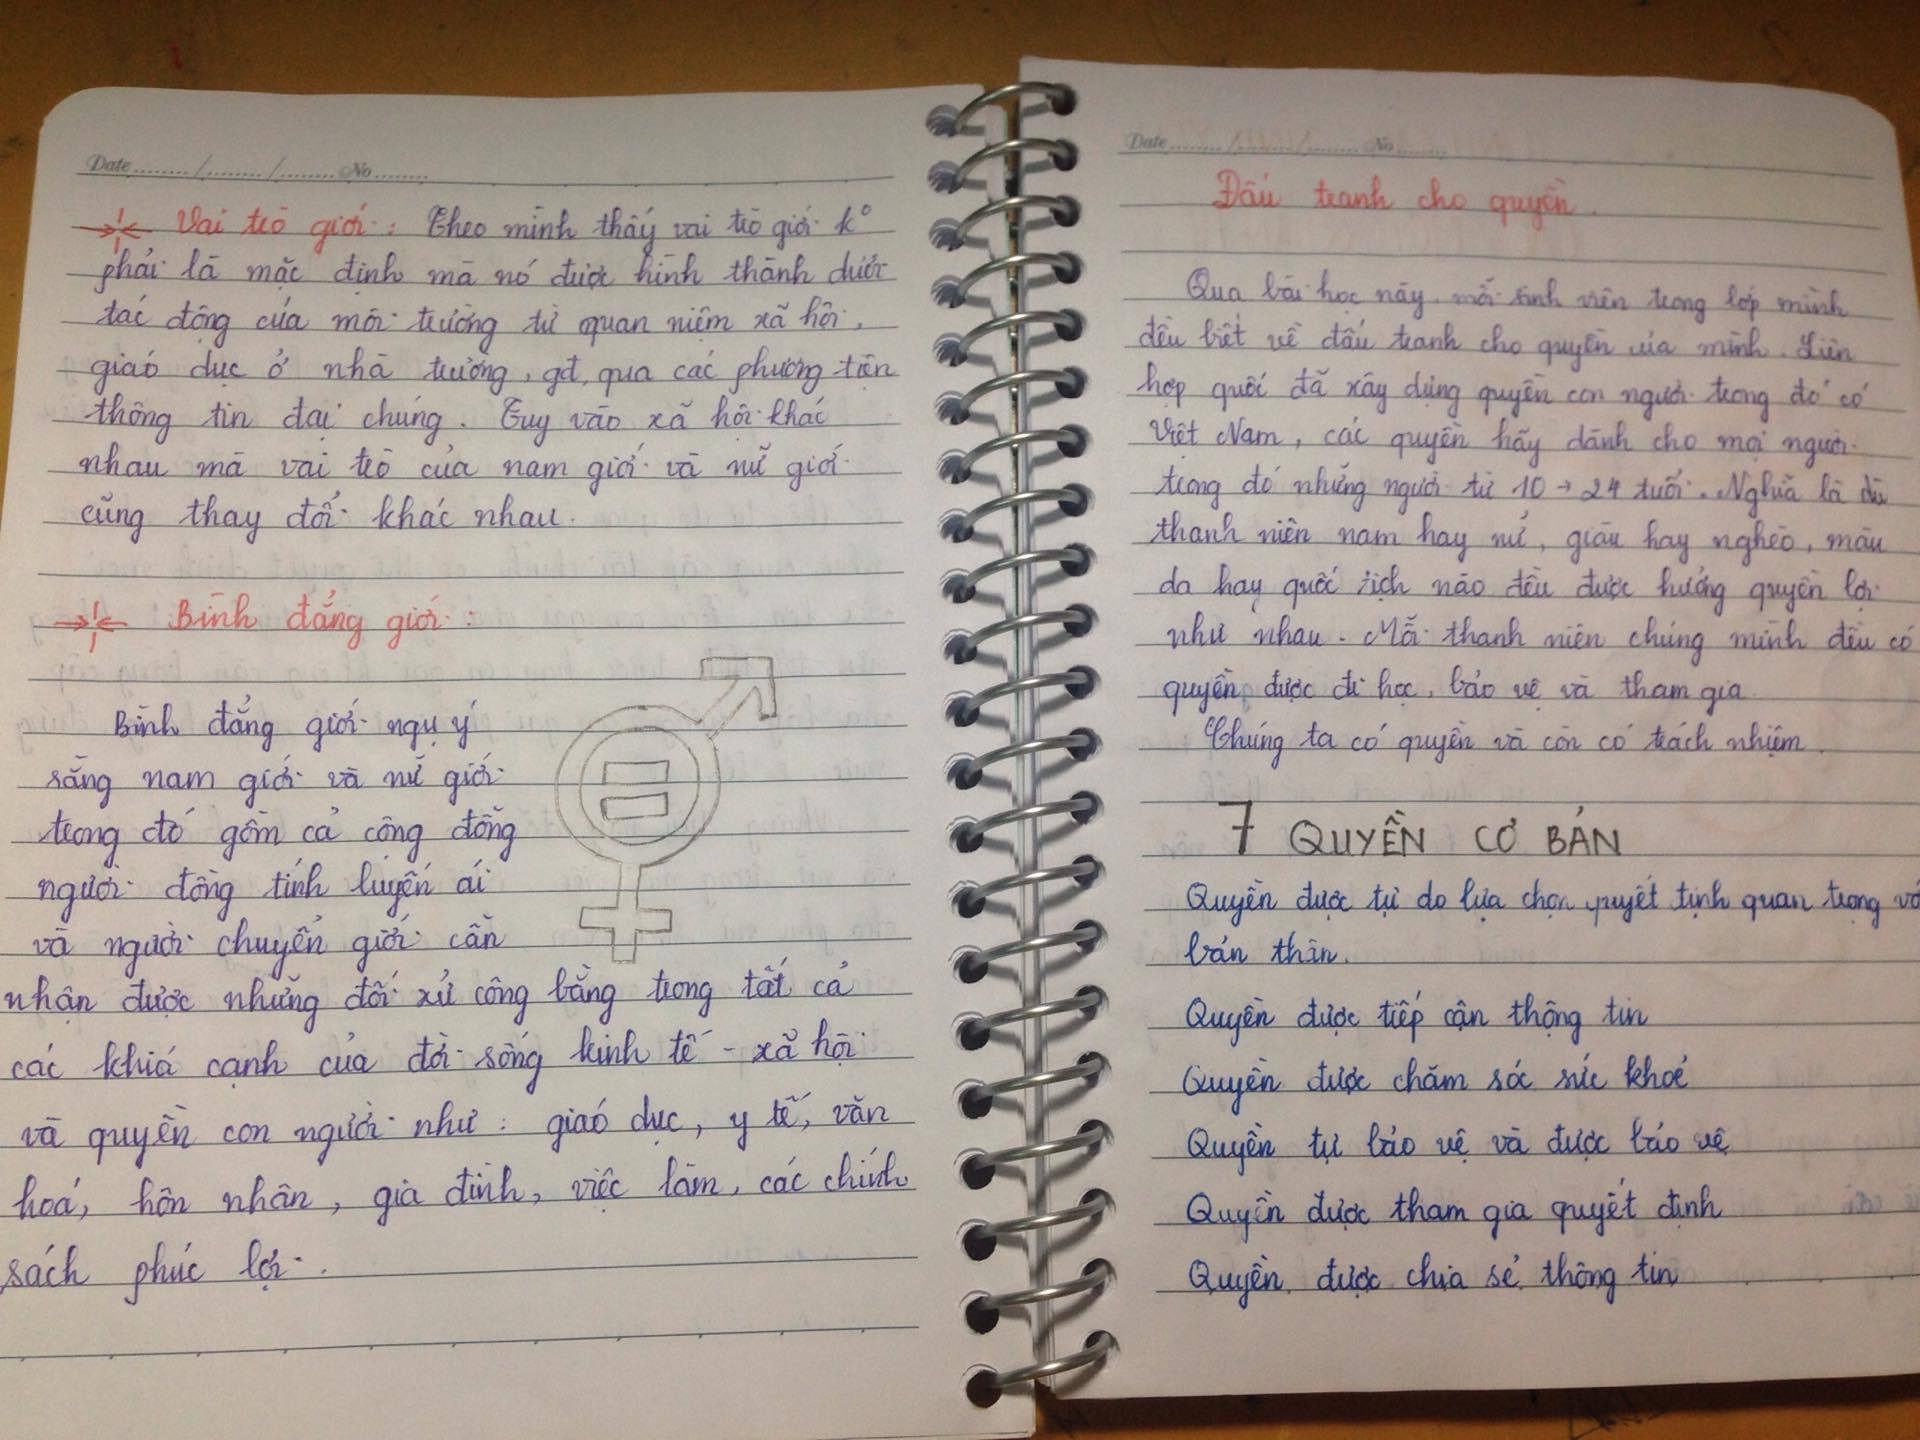 Date ......../......../........ No ........
Vai trò giới : Theo mình thấy vai trò giới k°
phải là mặc định mà nó được hình thành dưới
tác động của môi trường từ quan niệm xã hội,
giáo dục ở nhà trường, gđ, qua các phương tiện
thông tin đại chúng. Tuy vào xã hội khác
nhau mà vai trò của nam giới và nữ giới
cũng thay đổi khác nhau.
Bình đẳng giới :
Bình đẳng giới ngụ ý
rằng nam giới và nữ giới
trong đó gồm cả cộng đồng
người đồng tính luyến ái
và người chuyển giới cần
nhận được những đối xử công bằng trong tất cả
các khía cạnh của đời sống kinh tế - xã hội
và quyền con người như : giáo dục, y tế, văn
hoá, hôn nhân, gia đình, việc làm, các chính
sách phúc lợi.
Date ......../......../........ No ........
Đấu tranh cho quyền.
Qua bài học này, mỗi sinh viên trong lớp mình
đều biết về đấu tranh cho quyền của mình. Liên
hợp quốc đã xây dựng quyền con người trong đó có
Việt Nam, các quyền hãy dành cho mọi người
trong đó những người từ 10 → 24 tuổi. Nghĩa là dù
thanh niên nam hay nữ, giàu hay nghèo, màu
da hay quốc tịch nào đều được hưởng quyền lợi
như nhau. Mỗi thanh niên chúng mình đều có
quyền được đi học, bảo vệ và tham gia
Chúng ta có quyền và còn có trách nhiệm.
7 QUYỀN CƠ BẢN
Quyền được tự do lựa chọn quyết định quan trọng về
bản thân.
Quyền được tiếp cận thông tin
Quyền được chăm sóc sức khoẻ
Quyền tự bảo vệ và được bảo vệ
Quyền được tham gia quyết định
Quyền được chia sẻ thông tin